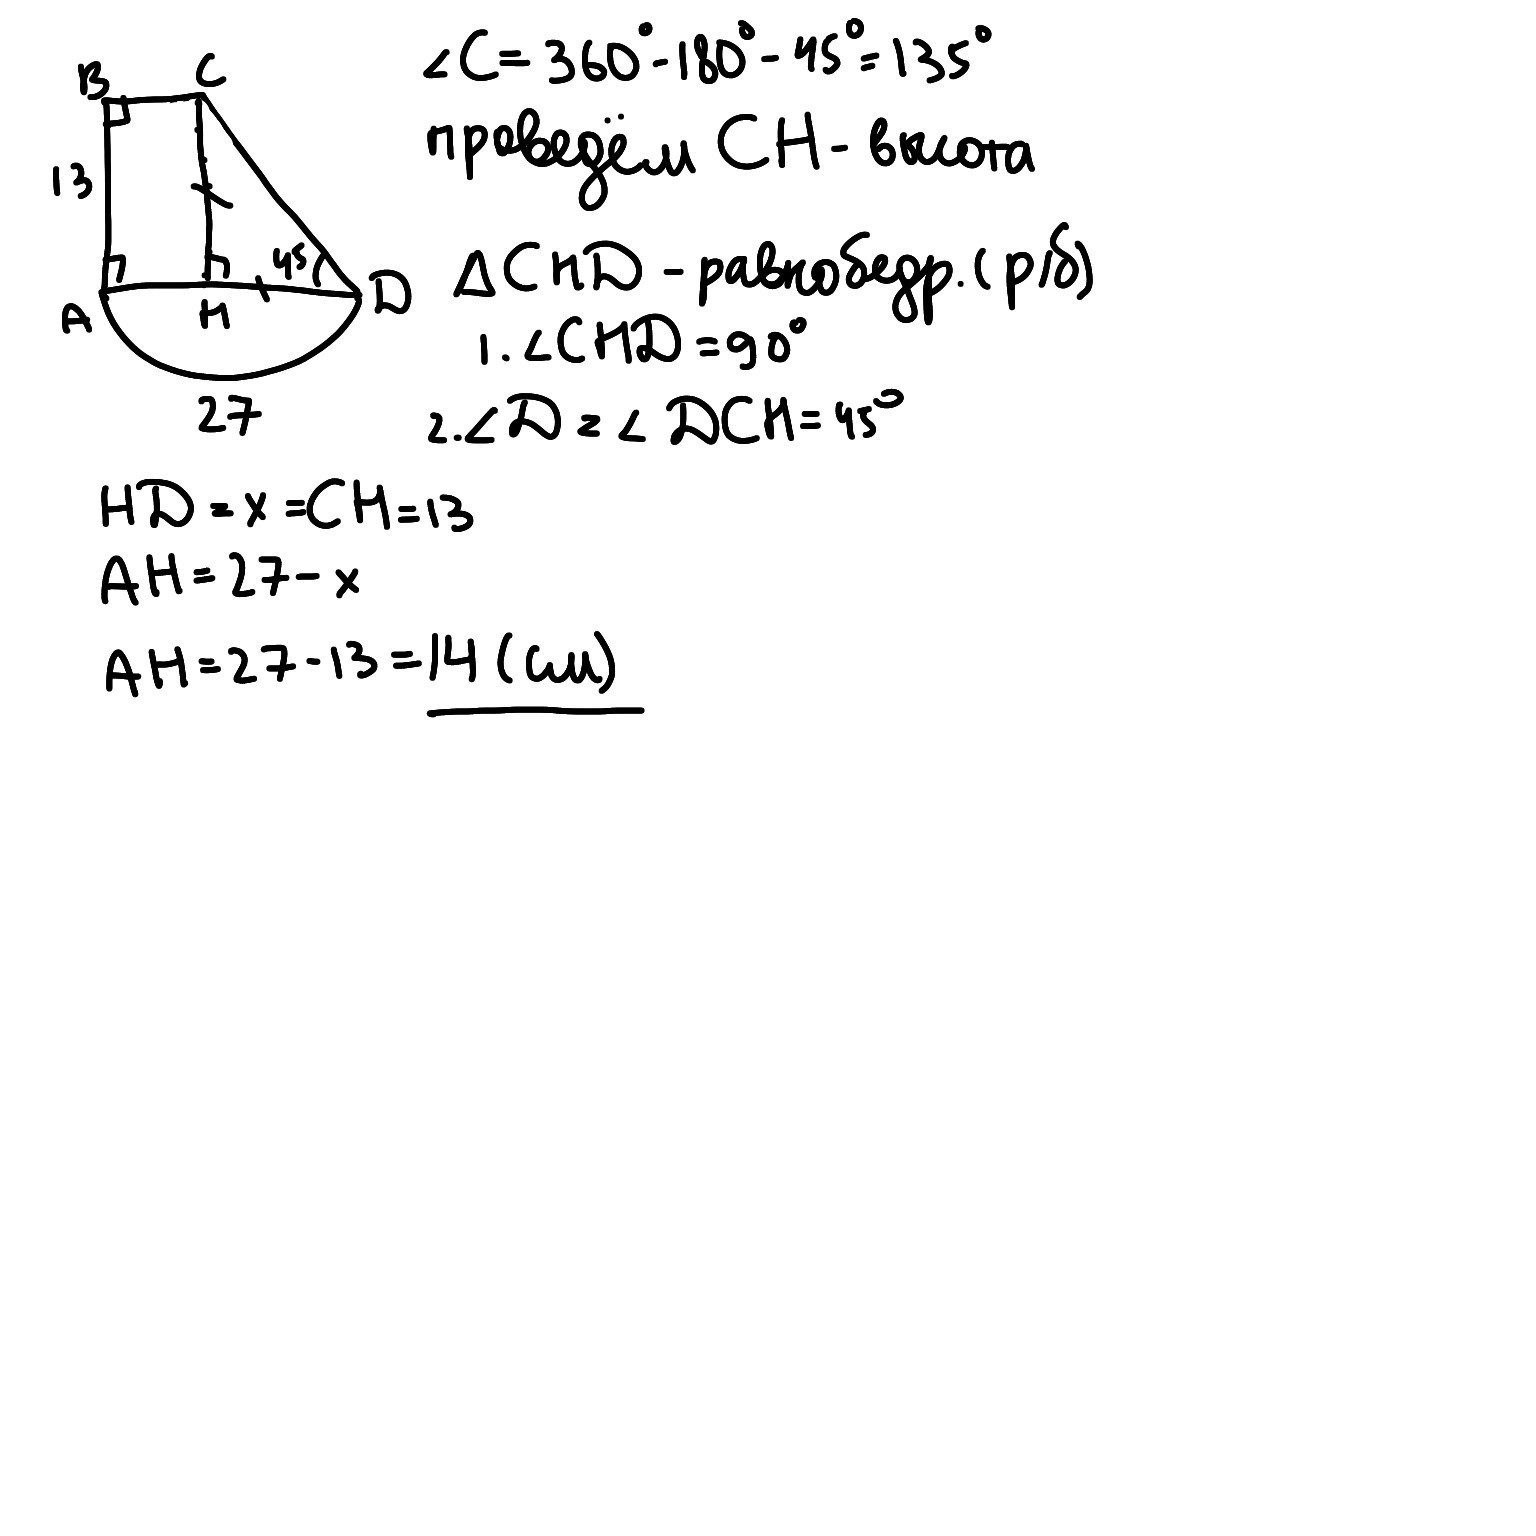 B C
∠C = 360° - 180° - 45° = 135°
проведём CH - высота
13
45
A H D
27
△CHD - равнобедр. (р/б)
1. ∠CHD = 90°
2. ∠D = ∠DCH = 45°
HD = x = CH = 13
AH = 27 - x
AH = 27 - 13 = 14 (см)